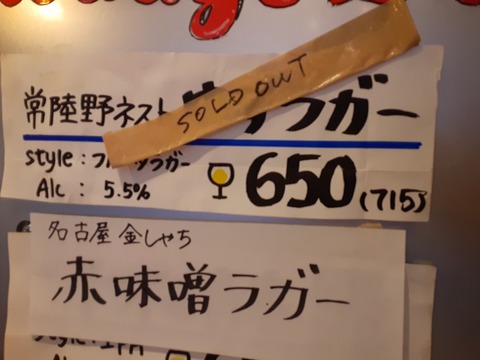 SOLD OUT
常陸野ネスト ラガー
style : フルーツラガー
Alc : 5.5%
650 (715)
名古屋 金しゃち
赤味噌ラガー
style : IPA